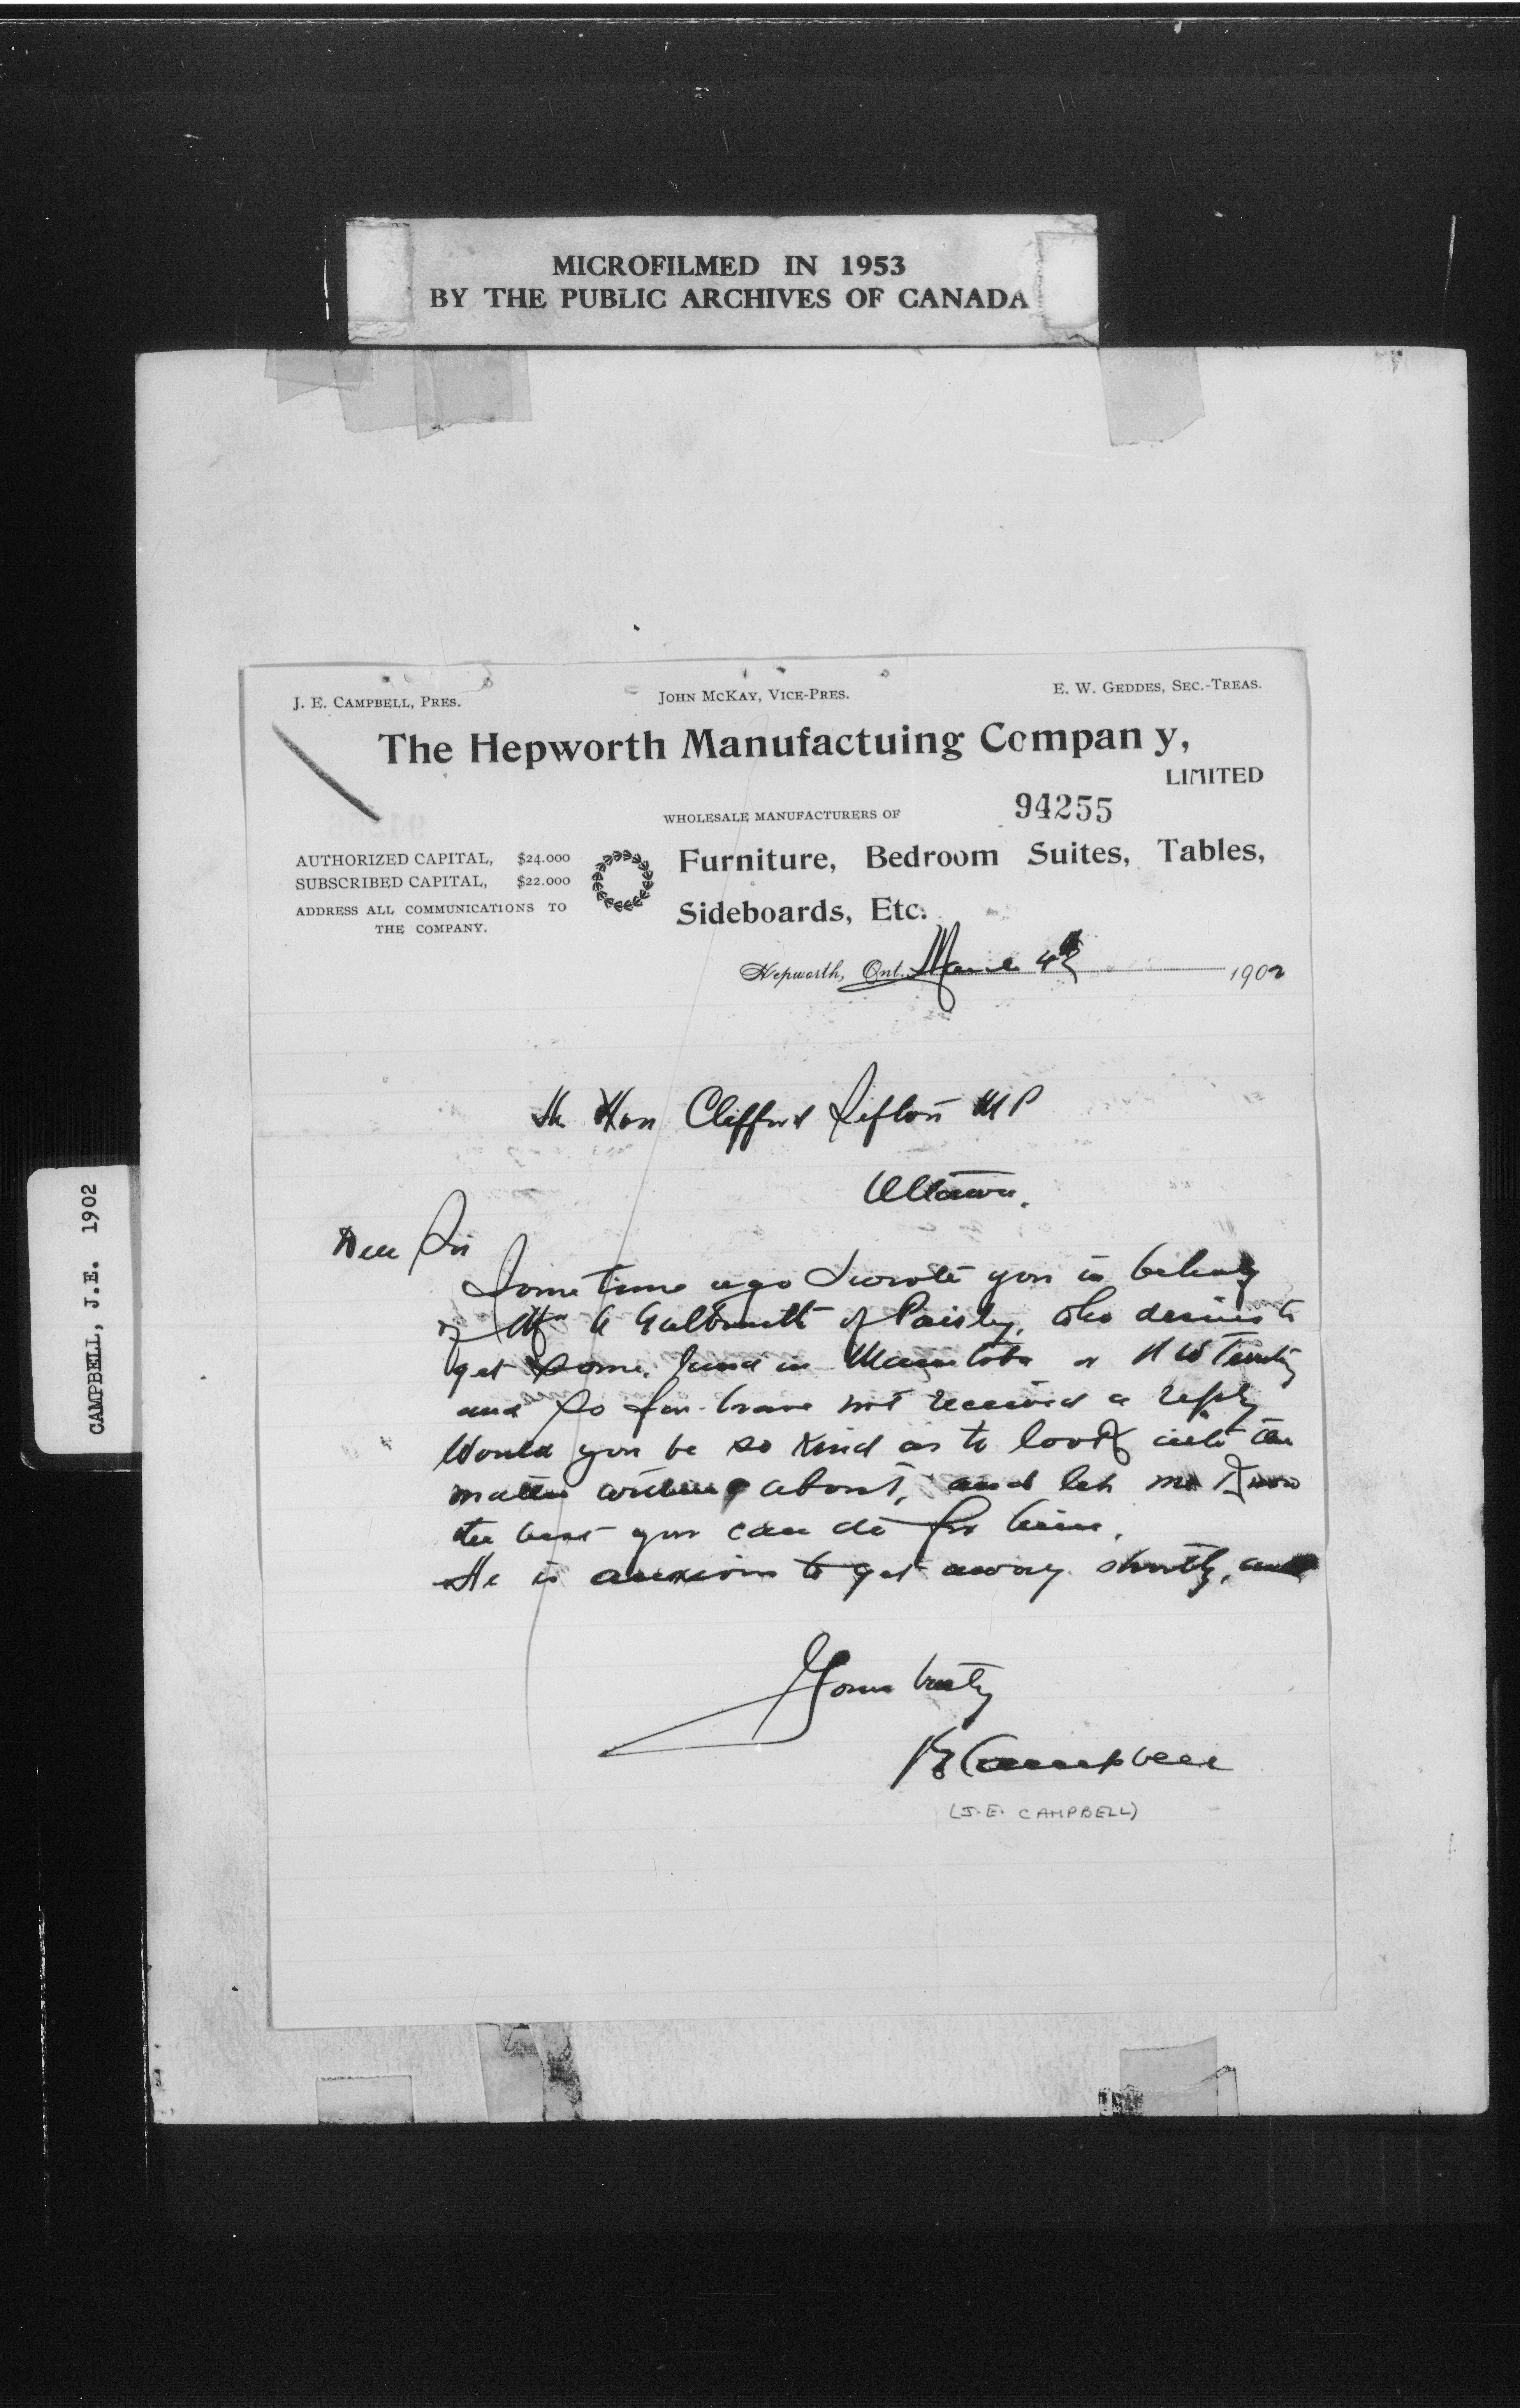 MICROFILMED IN 1953
BY THE PUBLIC ARCHIVES OF CANADA
CAMPBELL, J.E. 1902
J. E. CAMPBELL, PRES. JOHN MCKAY, VICE-PRES. E. W. GEDDES, SEC.-TREAS.
The Hepworth Manufactuing Company,
LIMITED
94255
WHOLESALE MANUFACTURERS OF
AUTHORIZED CAPITAL, $24.000
SUBSCRIBED CAPITAL, $22.000
ADDRESS ALL COMMUNICATIONS TO
THE COMPANY.
Furniture, Bedroom Suites, Tables,
Sideboards, Etc.
Hepworth, Ont. March 4th 1902
The Hon Clifford Sifton MP
Ottawa.
Dear Sir
Sometime ago I wrote you in behalf
of Mr A Galbraith of Paisley, who desires to
get some land in Manitoba or N W Territory
and so far have not received a reply
Would you be so kind as to look into the
matter writing about, and let me know
the best you can do for him.
He is anxious to get away shortly,
Yours truly
J E Campbell
(J.E. CAMPBELL)